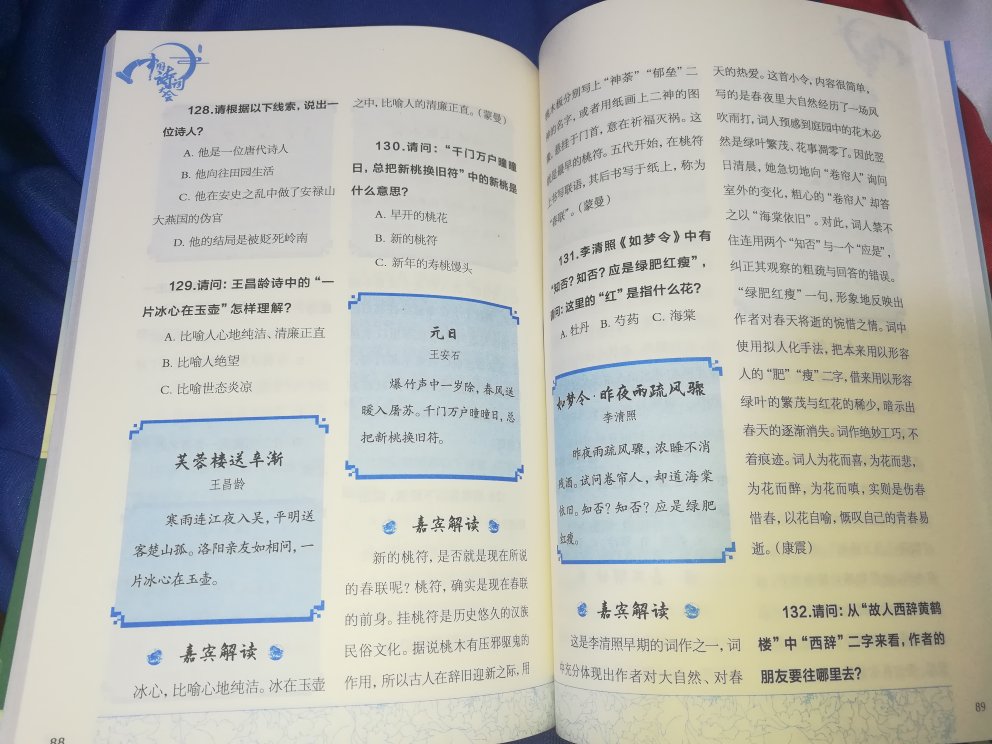 中国诗词大会
128.请根据以下线索，说出一
位诗人？
A. 他是一位唐代诗人
B. 他向往田园生活
C. 他在安史之乱中做了安禄山
大燕国的伪官
D. 他的结局是被贬死岭南
129.请问：王昌龄诗中的“一
片冰心在玉壶”怎样理解？
A. 比喻人心地纯洁、清廉正直
B. 比喻人绝望
C. 比喻世态炎凉
芙蓉楼送辛渐
王昌龄
寒雨连江夜入吴，平明送
客楚山孤。洛阳亲友如相问，一
片冰心在玉壶。
嘉宾解读
冰心，比喻心地纯洁。冰在玉壶
88
之中，比喻人的清廉正直。（蒙曼）
130.请问：“千门万户曈曈
日，总把新桃换旧符”中的新桃是
什么意思？
A. 早开的桃花
B. 新的桃符
C. 新年的寿桃馒头
元日
王安石
爆竹声中一岁除，春风送
暖入屠苏。千门万户曈曈日，总
把新桃换旧符。
嘉宾解读
新的桃符，是否就是现在所说
的春联呢？桃符，确实是现在春联
的前身。挂桃符是历史悠久的汉族
民俗文化。据说桃木有压邪驱鬼的
作用，所以古人在辞旧迎新之际，用
桃木板分别写上“神荼”“郁垒”二
神的名字，或者用纸画上二神的图
像，悬挂于门首，意在祈福灭祸。这
就是最早的桃符。五代开始，在桃符
上书写联语，其后书写于纸上，称为
“春联”。（蒙曼）
131.李清照《如梦令》中有
“知否？知否？应是绿肥红瘦”，
请问：这里的“红”是指什么花？
A. 牡丹 B. 芍药 C. 海棠
如梦令·昨夜雨疏风骤
李清照
昨夜雨疏风骤，浓睡不消
残酒。试问卷帘人，却道海棠
依旧。知否？知否？应是绿肥
红瘦。
嘉宾解读
这是李清照早期的词作之一，词
中充分体现出作者对大自然、对春
天的热爱。这首小令，内容很简单，
写的是春夜里大自然经历了一场风
吹雨打，词人预感到庭园中的花木必
然是绿叶繁茂、花事凋零了。因此翌
日清晨，她急切地向“卷帘人”询问
室外的变化，粗心的“卷帘人”却答
之以“海棠依旧”。对此，词人禁不
住连用两个“知否”与一个“应是”，
纠正其观察的粗疏与回答的错误。
“绿肥红瘦”一句，形象地反映出
作者对春天将逝的惋惜之情。词中
使用拟人化手法，把本来用以形容
人的“肥”“瘦”二字，借来用以形容
绿叶的繁茂与红花的稀少，暗示出
春天的逐渐消失。词作绝妙工巧，不
着痕迹。词人为花而喜，为花而悲，
为花而醉，为花而嗔，实则是伤春
惜春，以花自喻，慨叹自己的青春易
逝。（康震）
132.请问：从“故人西辞黄鹤
楼”中“西辞”二字来看，作者的
朋友要往哪里去？
89